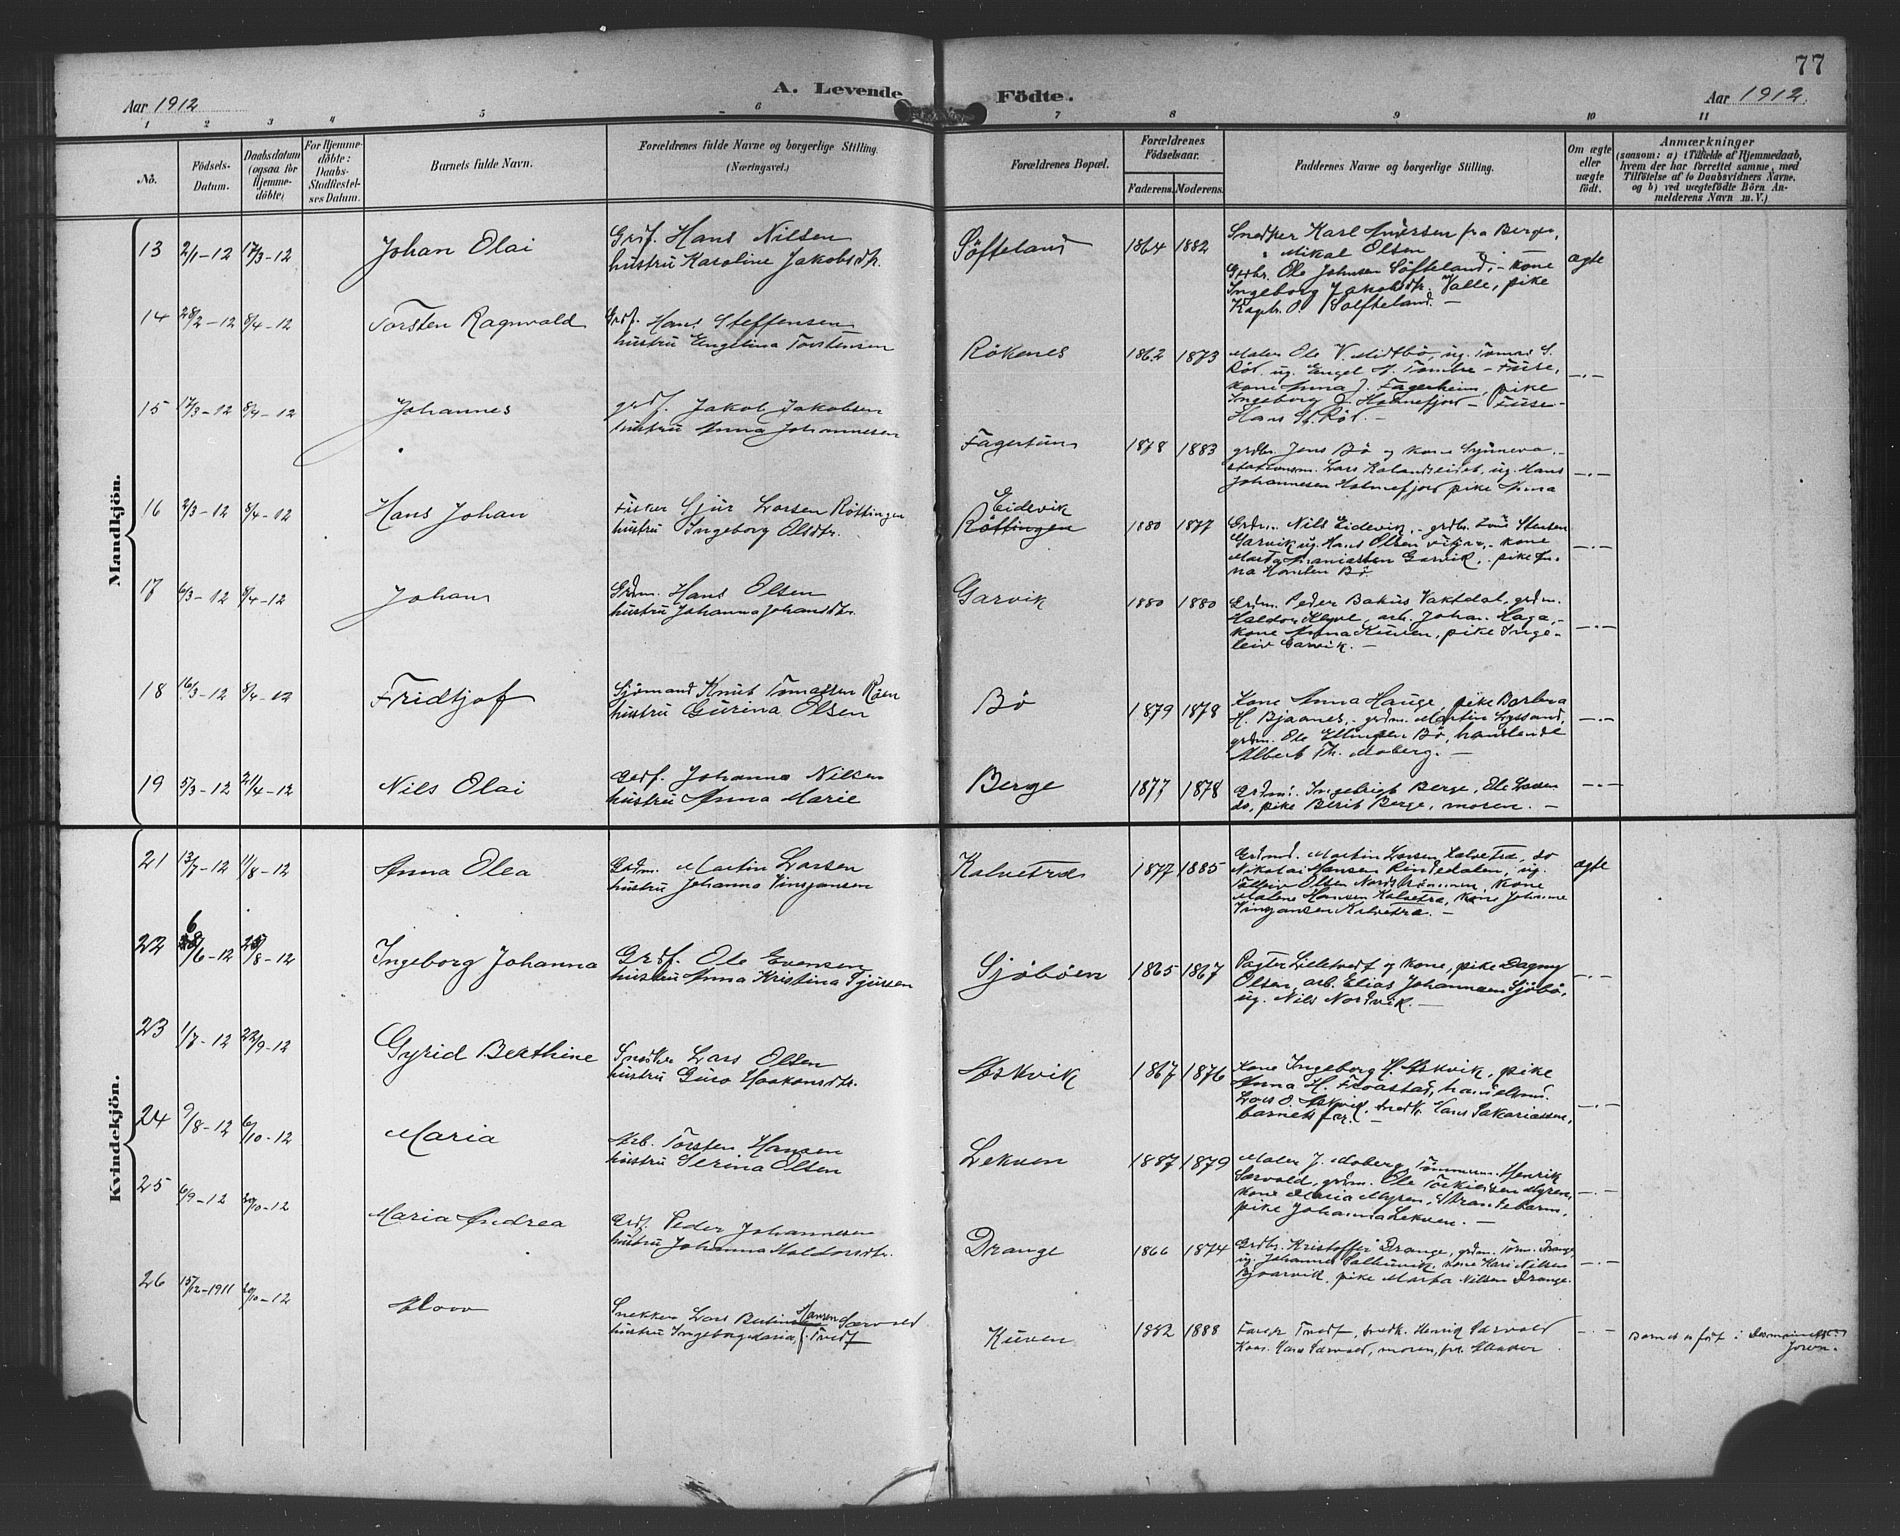 77
Aar 1912
A. Levende Födte.
Aar 1912.
1 2 3 4 5 6 7 8 9 10 11
No.
Födsels-Datum.
Daabsdatum (ogsaa for Hjemme-döbte)
For Hjemme-döbte: Daabs-Stadfæstel-ses Datum.
Barnets fulde Navn.
Forældrenes fulde Navne og borgerlige Stilling. (Næringsvei.)
Forældrenes Bopæl.
Forældrenes Födselsaar.
Faderens. Moderens.
Faddernes Navne og borgerlige Stilling.
Om ægte eller uægte födt.
Anmærkninger
(saasom: a) i Tilfælde af Hjemmedaab,
hvem der har forrettet samme, med
Tilföielse af to Daabsvidners Navne,
og b) ved uægtefödte Börn An-
melderens Navn m. V.)
Mandkjön.
13 2/1-12 17/3-12 Johan Olai
Grdf. Hans Nilsen
hustru Karoline Jakobsdtr.
Söfteland 1864 1882
Snedker Karl Andersen fra Berge,
" Mikal Olsen
Grbr. Ole Johnsen Söfteland, - kone
Ingeborg Jakobsdtr. Valle, pike
ægte
14 28/2-12 8/4-12 Torsten Ragnvald
Grdf. Hans Steffensen
hustru Engelina Torstensen
Rökenes 1862 1873
Maler Ole V. Midtbö, ug. Tomas S.
Röt. ug. Engel H. Tombre - Fuse,
kone Anna J. Fagerheim, pike
Ingeborg J. Holmefjord - Fuse -
Hans St. Röt. -
-.-
15 17/3-12 8/4-12 Johannes
grdf. Jakob Jakobsen
hustru Anna Johannesen
Fagertun 1878 1883
grdbr. Jens Bö og kone Synneva,
stationsm. Lars Kalandseidet, ug. Hans
Johannesen Holmefjord pike Anna
-.-
16 2/3-12 8/4-12 Hans Johan
Fisker Sjur Larsen Röttingen
hustru Ingeborg Olsdtr.
Eidevik
Röttingen 1880 1877
Grdm. Nils Eidevik, grdbr.
Garvik ug. Hans Olsen kone
Garvik, pike An-
na Bö
-.-
17 6/3-12 8/4-12 Johan
Grdm. Hans Olsen
hustru Johanna Johansdtr.
Garvik 1880 1880
Grdm. Peder Bakus Vaktdal, grdm.
Haldor arb. Johan Haga, -
kone Anna Kuven, pike Inge-
leiv Garvik. -
-.-
18 16/3-12 8/4-12 Fridtjof
Sjömand Knut Tomassen Röen
hustru Gurina Olsen
Bö 1879 1878
Kone Anna Hauge, pike Barbra
H. Bjaanes, grdm. Martin Lyssand,
grdm. Ole Ellingsen Bö, handlende
Albert Th. Moberg. -
-.-
19 5/3-12 21/4-12 Nils Olai
Grdf. Johannes Nilsen
hustru Anna Marie
Berge 1877 1878
Grdm. Ingebrigt Berge, Ole
do, pike Berit Berge, moren. -
-.-
Kvindekjön.
21 13/7-12 11/8-12 Anna Olea
Grdm. Martin Larsen
hustru Johanna Vinjansen
Kalvetræ 1877 1885
Grdmd. Martin Larsen Kalvetræ, do
Nikolai Hansen Rinddalen, ug.
Olsen kone
Malene Hansen Kalvetræ, kone Johanne
Vinjansen Kalvetræ. -
ægte
22 6/6-12 25/8-12 Ingeborg Johanna
Grdf. Ole Evensen
hustru Anna Kristina Tjursen
Sjöböen 1865 1867
Pagter Lilletvedt og kone, pike Dagny
Olsen, arb. Elias Johannesen Sjöbö,
ug. Nils Nordvik. -
-.-
23 1/7-12 22/9-12 Gyrid Berthine
Snedker Lars Olsen
hustru Guro Haakonsdtr.
Askvik 1867 1876
Kone Ingeborg H. Askvik, pike
Anna H. Frøastad, handelsm.
Lars O. Askvik, snedk. Hans Sakariassen,
barnets far. -
-.-
24 9/8-12 6/10-12 Maria
Arb. Torsten Hansen
hustru Serina Olsen
Lekven 1887 1879
Maler J. Moberg, Tömmerm. Henrik
Særvold, grdm. Ole Torkildsen Myren,
kone Maria Myren, Strandebarm,
pike Johanna Lekven. -
-.-
25 6/9-12 20/10-12 Maria Andrea
Grdf. Peder Johannesen
hustru Johanna Haldorsdtr.
Drange 1866 1874
Grdbr. Kristoffer Drange, grdm. Torm. Drange,
ug. Johannes kone Kari Nilsen
Bjaarvik, pike Marta Nilsen Drange.
-.-
26 15/12-1911 20/10-12
Snekker Lars Hansen Særvold
hustru Ingeborg Maria f. Tvedt
Kuven 1882 1888
Tvedt, snedk. Henrik Særvold
Særvold, moren, frk.
-.-
Barnet er født i